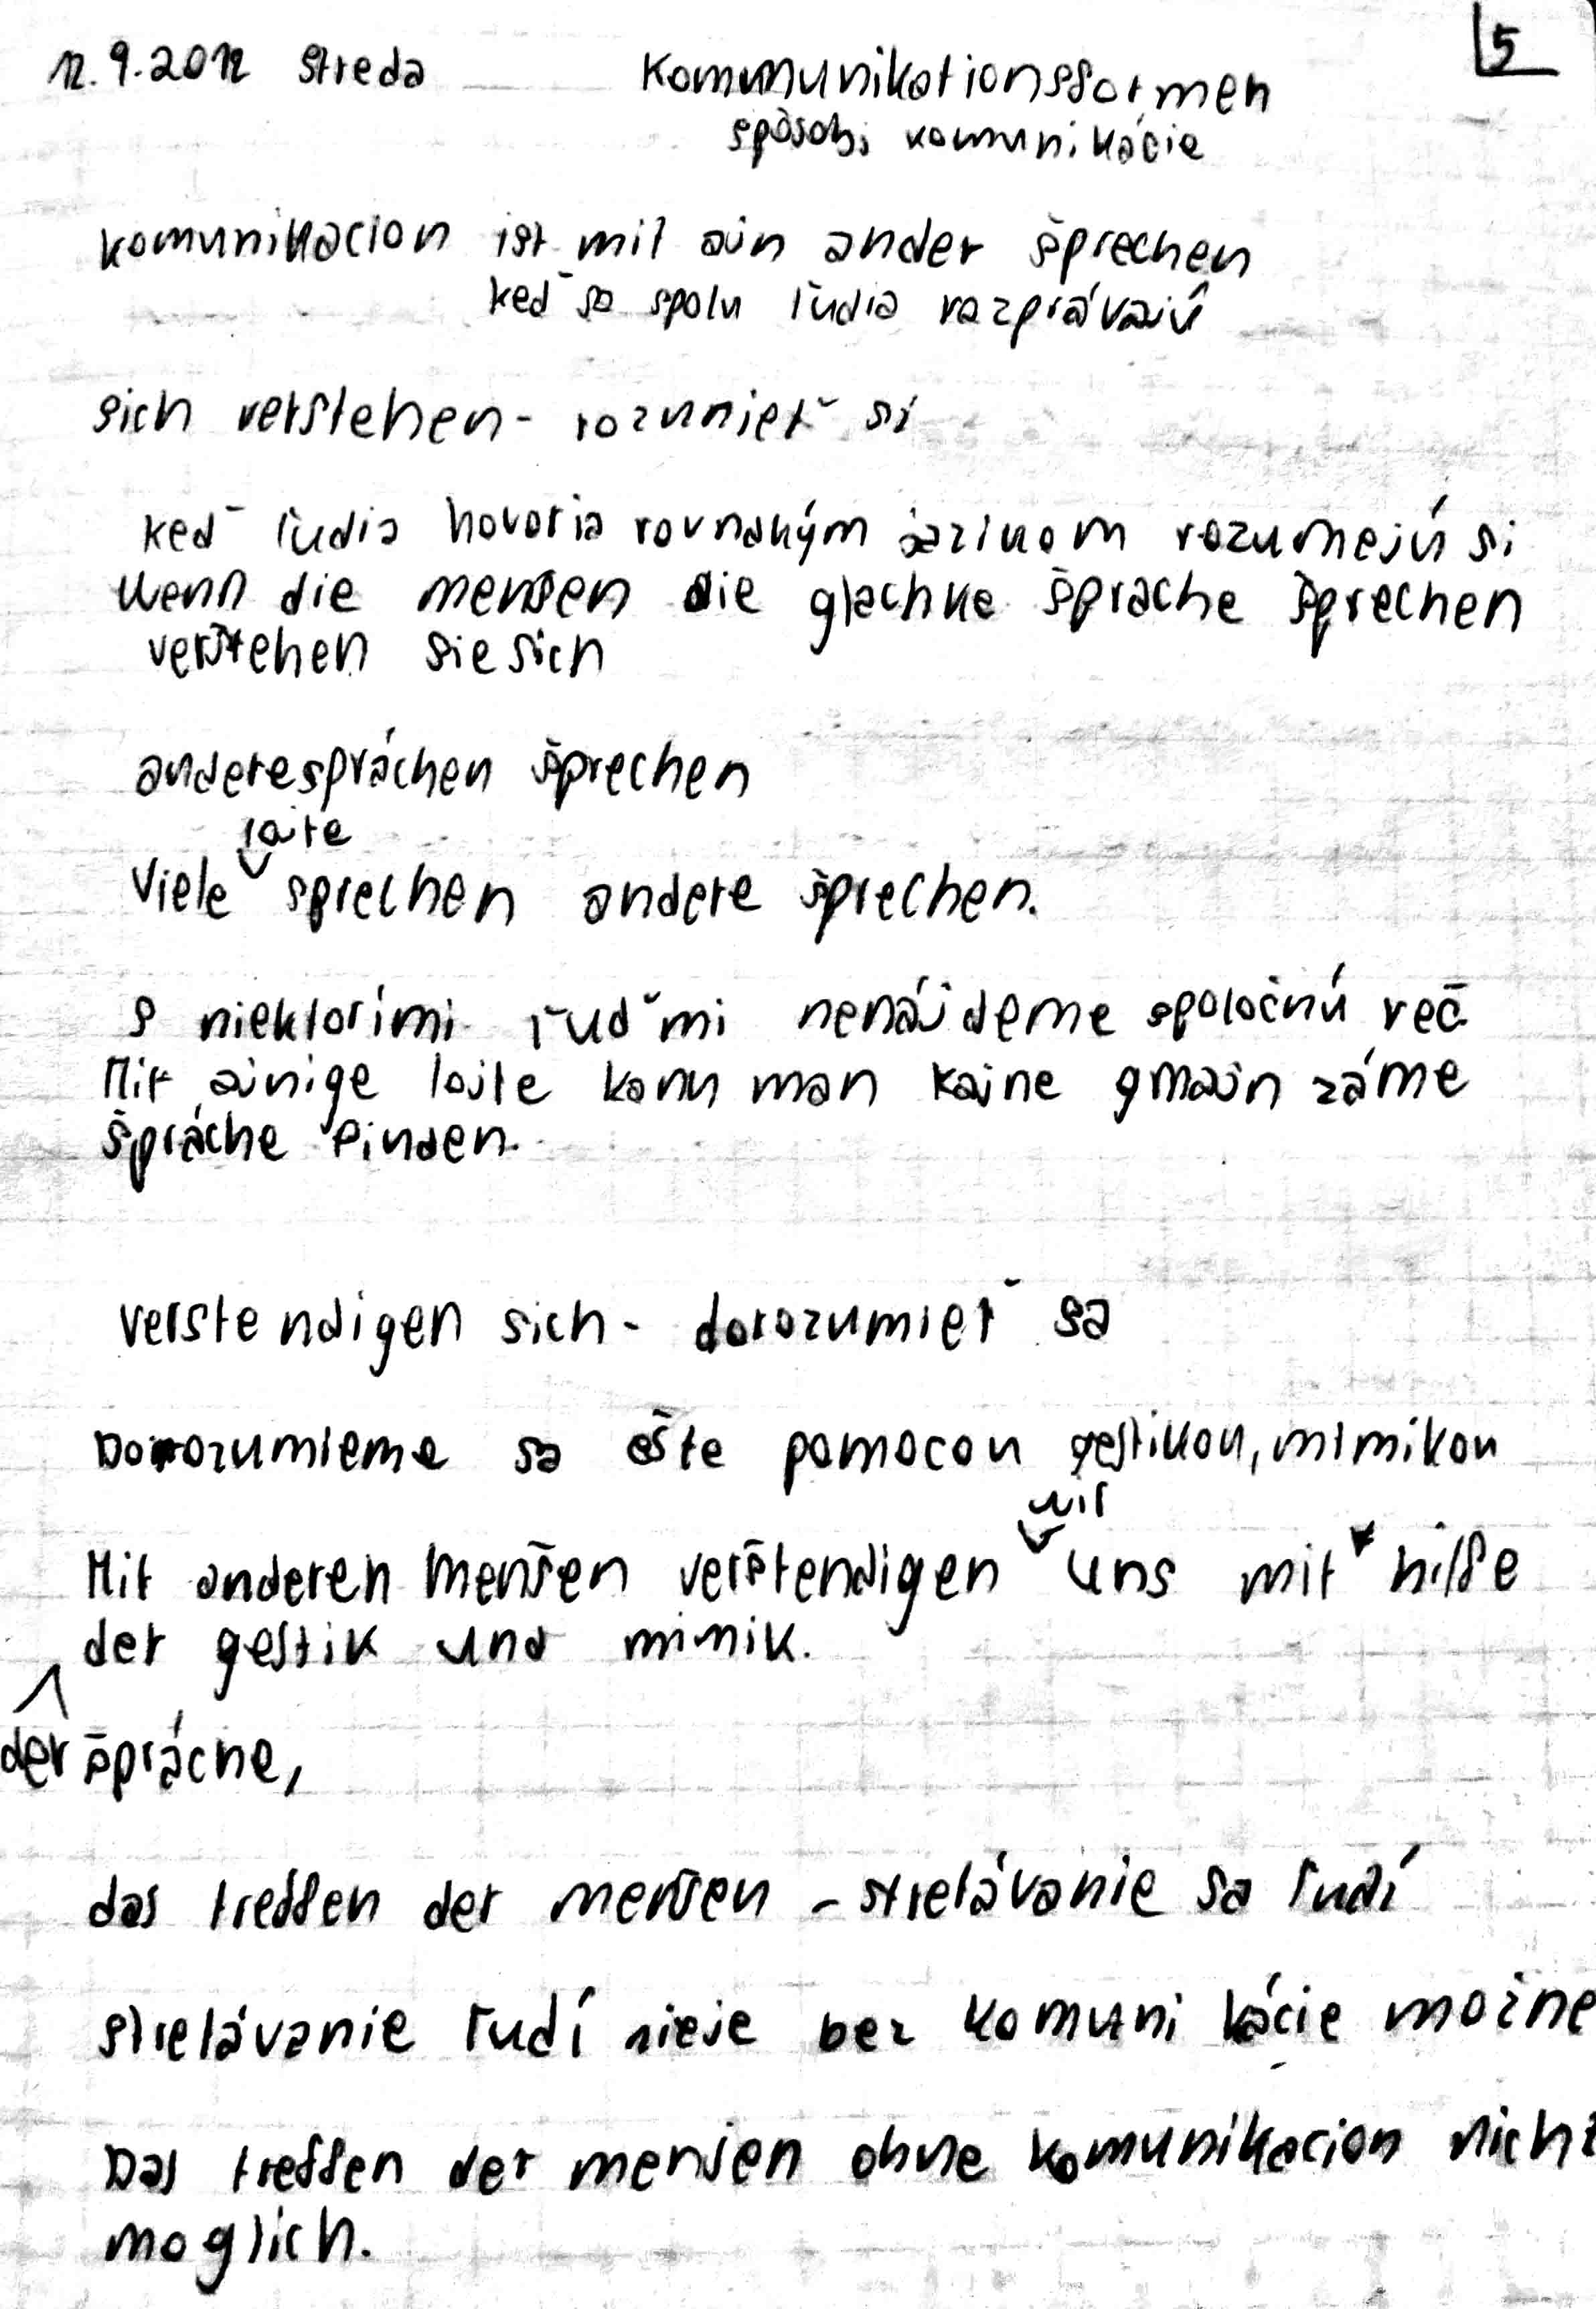 12.9.2012 streda Kommunikationsformen 5
spôsobi komunikácie
komunikacion ist mit ajn ander šprechen
keď sa spolu ľudia rozprávajú
sich verstehen - rozumieť si
keď ľudia hovoria rovnakým jazikom rozumejú si
Wenn die menšen die glachke šprache šprechen
verštehen sie sich
anderespráchen šprechen
lojte
Viele sprechen andere šprechen.
s niektorími ľuďmi nenájdeme spoločnú reč
Mit ajnige lojte kann man kajne gmajn záme
špráche finden.
verstendigen sich - dorozumieť sa
Dorozumieme sa ešte pomocou gestikou, mimikou
wir
Mit anderen menšen verštendigen uns mit hilfe
der gestik und mimik.
der špráche,
das treffen der menšen - stretávanie sa ľudí
stretávanie ľudí nieje bez komunikácie možne
Das treffen der menšen ohne komunikacion nicht
moglich.